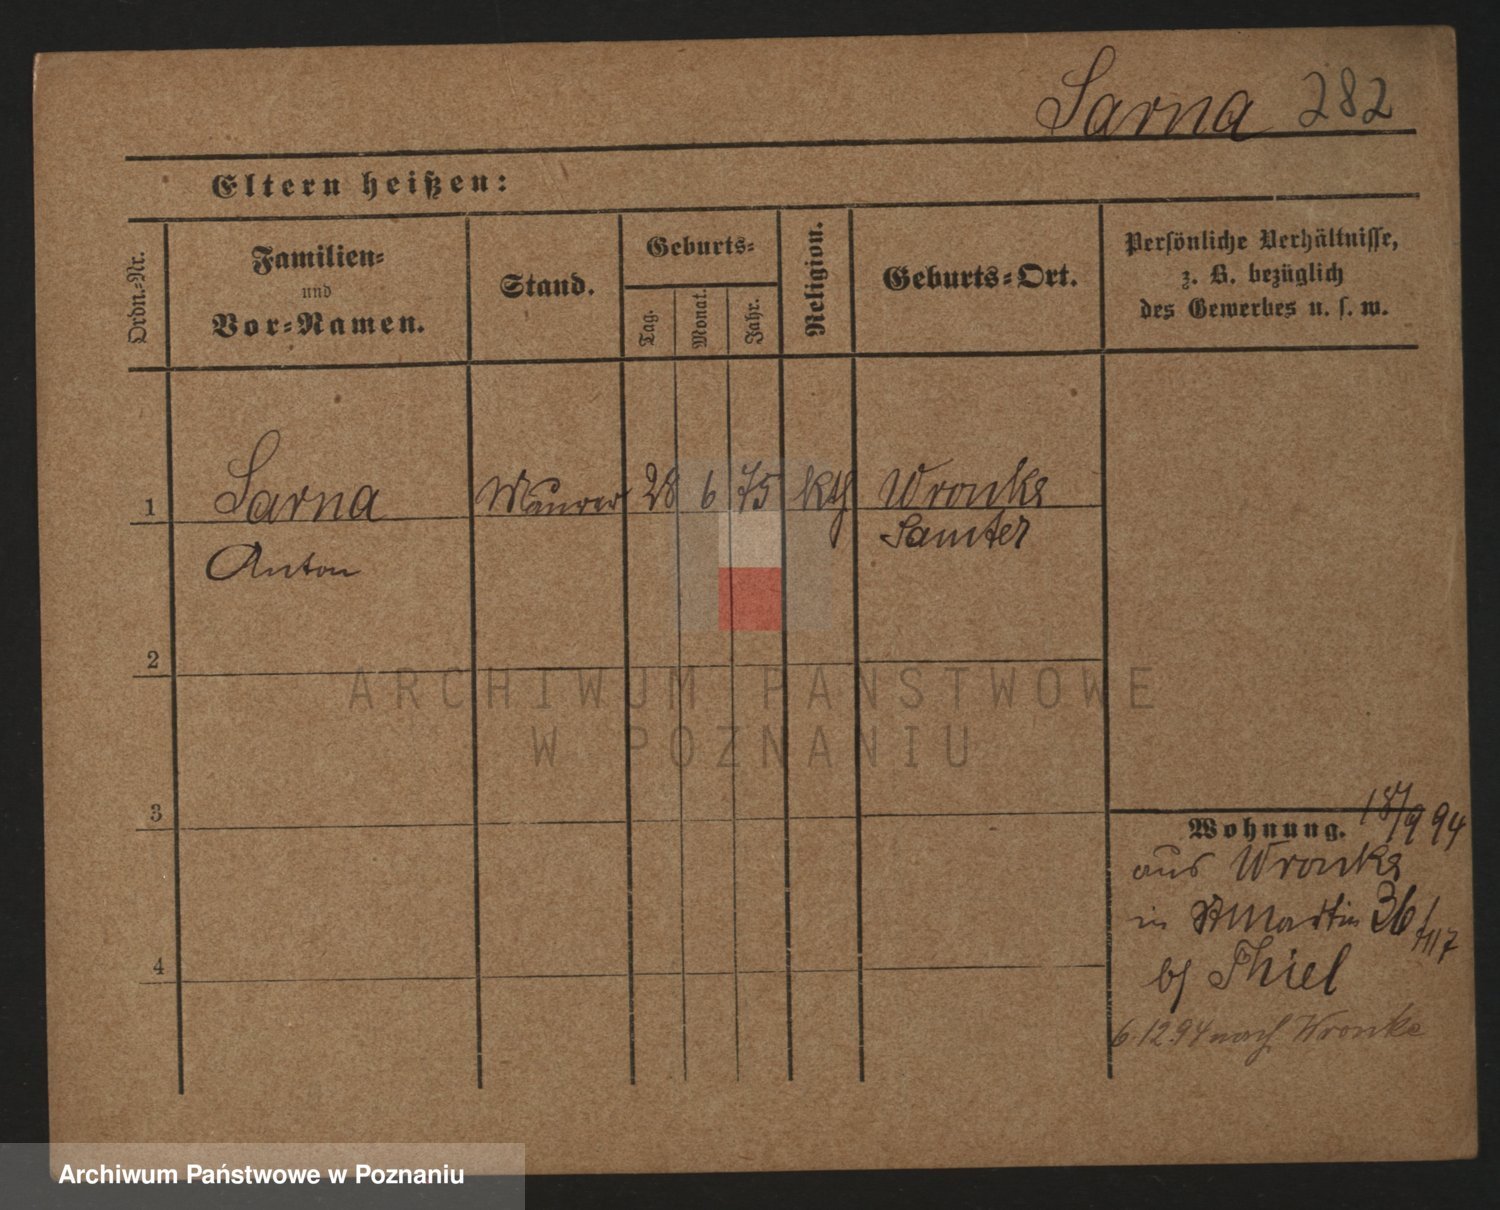 Sarna 282
Eltern heißen:
Ordn.-Nr.
Familien-
und
Vor-Namen.
Stand.
Geburts-
Tag.
Monat.
Jahr.
Religion.
Geburts-Ort.
Persönliche Verhältnisse,
z. B. bezüglich
des Gewerbes u. s. w.
1 Sarna Maurer 28 6 75 kth Wronke
Anton Samter
2
3
4
ARCHIWUM PAŃSTWOWE
W POZNANIU
Wohnung. 18/9 94
aus Wronke
in St Martin 36/
b/ Thiel
6.12.94 nach Wronke
Archiwum Państwowe w Poznaniu